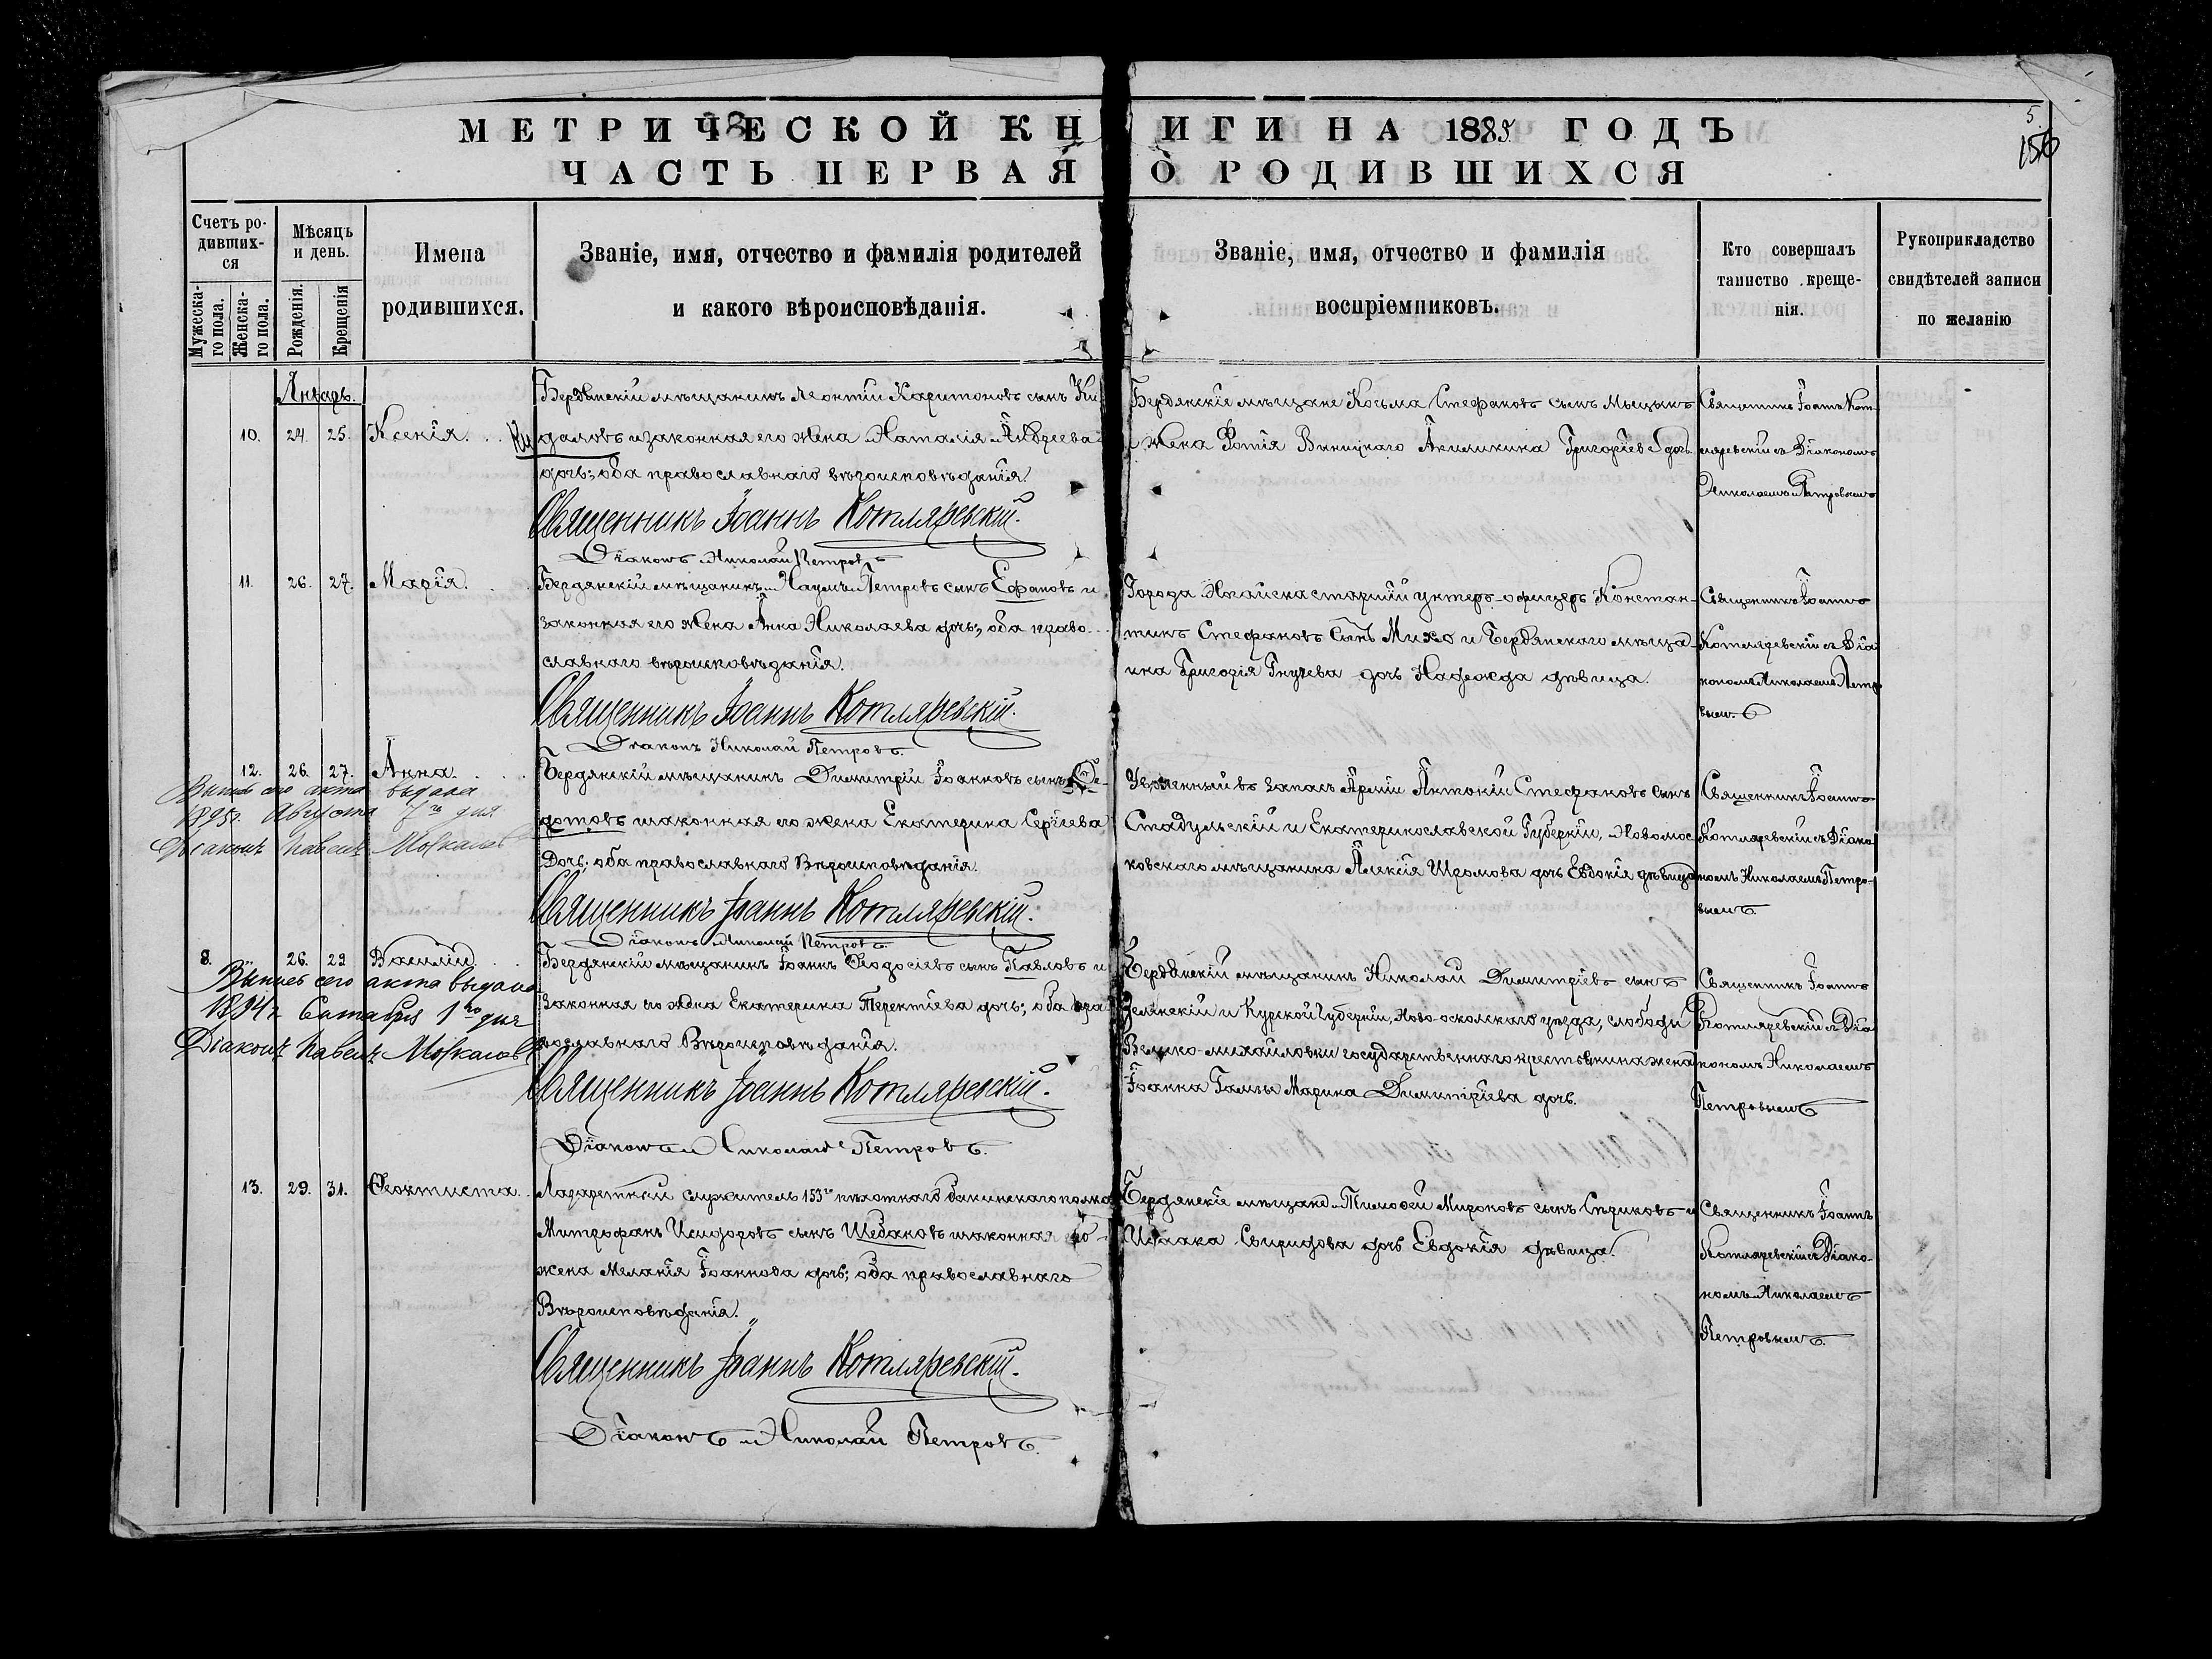 МЕТРИЧЕСКОЙ КНИГИ НА 1885 ГОДЪ
5
156
ЧАСТЬ ПЕРВАЯ О РОДИВШИХСЯ
Счетъ родившихся
Мужеска-го пола.
Женска-го пола.
Мѣсяцъ и день.
Рожденія.
Крещенія
Имена родившихся.
Званіе, имя, отчество и фамилія родителей
и какого вѣроисповѣданія.
Званіе, имя, отчество и фамилія
воспріемниковъ.
Кто совершалъ таинство крещенія.
Рукоприкладство свидѣтелей записи по желанію
Январь.
10. 24. 25. Ксенія.
Бердянскій мѣщанинъ Леонтій Харитоновъ сынъ Ки
даловъ и законная его жена Наталія Авдеева
дочь; оба православнаго вѣроисповѣданія.
Священникъ Іоаннъ Котляревскій.
Діаконъ Николай Петровъ
Бердянскіе мѣщане Косьма Стефановъ сынъ Мыцыкъ
и жена Григоріева дочь
Священникъ Іоаннъ Кот-
ляревскій съ Діакономъ
Николаемъ Петровымъ
11. 26. 27. Марія.
Бердянскій мѣщанинъ Наумъ Петровъ сынъ Ефановъ и
законная его жена Анна Николаева дочь; оба право-
славнаго вѣроисповѣданія.
Священникъ Іоаннъ Котляревскій.
Діаконъ Николай Петровъ.
Города Ногайска старшій унтеръ-офицеръ Констан-
тинъ Стефановъ сынъ Михо и Бердянскаго мѣща-
нина Григорія Гнучева дочь Надежда дѣвица.
Священникъ Іоаннъ
Котляревскій съ Діа
кономъ Николаемъ Петро
вымъ.
12. 26. 27. Анна.
Выпись сего акта выдана
1895г. Августа 7го дня
Діаконъ Павелъ Москалев
Бердянскій мѣщанинъ Димитрій Іоанновъ сынъ Ѳе-
дотовъ и законная его жена Екатерина Сергіева
Дочь; оба православнаго Вѣроисповѣданія.
Священникъ Іоаннъ Котляревскій.
Діаконъ Николай Петровъ
Уволенный въ запасъ Арміи Антоній Стефановъ сынъ
Стадульскій и Екатеринославской Губерніи, Новомос
ковскаго мѣщанина Алексія Шромова дочь Евдокія дѣвица
Священникъ Іоаннъ
Котляревскій съ Діако
номъ Николаемъ Петро-
вымъ
8. 26. 29 Василій.
Выпись сего акта выдана
1894 г. Сентября 1го дня
Діаконъ Павелъ Москалевъ
Бердянскій мѣщанинъ Іоаннъ Ѳеодосіевъ сынъ Павловъ и
Законная его жена Екатерина Терентіева дочь; оба пра
вославнаго Вѣроисповѣданія.
Священникъ Іоаннъ Котляревскій.
Діаконъ Николай Петровъ.
Бердянскій мѣщанинъ Николай Димитріевъ сынъ
Зелинскій и Курской Губерніи, Ново-оскольскаго уѣзда, слободы
Велико-михайловки государственнаго крестьянина жена
Іоанна Гамзы Марина Димитріева дочь.
Священникъ Іоаннъ
Котляревскій съ Діа
кономъ Николаемъ
Петровымъ
13. 29. 31. Ѳеоктиста.
Лазаретный служитель 153го пѣхотнаго бакинскаго полка
Митрофанъ Исидоровъ сынъ Шебановъ и законная его
жена Меланія Іоаннова дочь; оба православнаго
Вѣроисповѣданія.
Священникъ Іоаннъ Котляревскій.
Діаконъ Николай Петровъ.
Бердянскіе мѣщане Тимоѳей Мироновъ сынъ Спѣриковъ и
Исаака Свиридова дочь Евдокія дѣвица.
Священникъ Іоаннъ
Котляревскій съ Діако-
номъ Николаемъ
Петровымъ.